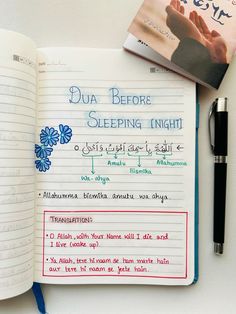 DUA BEFORE
SLEEPING [NIGHT]
اَللّٰهُمَّ بِاسْمِكَ اَمُوْتُ وَاَحْيَا
Amutu Allahumma
Wa-ahya Bismika
• Allahumma bismika amutu wa ahya.
TRANSLATION:
• O Allah, with Your Name will I die and
I live (wake up).
• Ya Allah, tere hi naam se ham marte hain
aur tere hi naam se jeete hain.